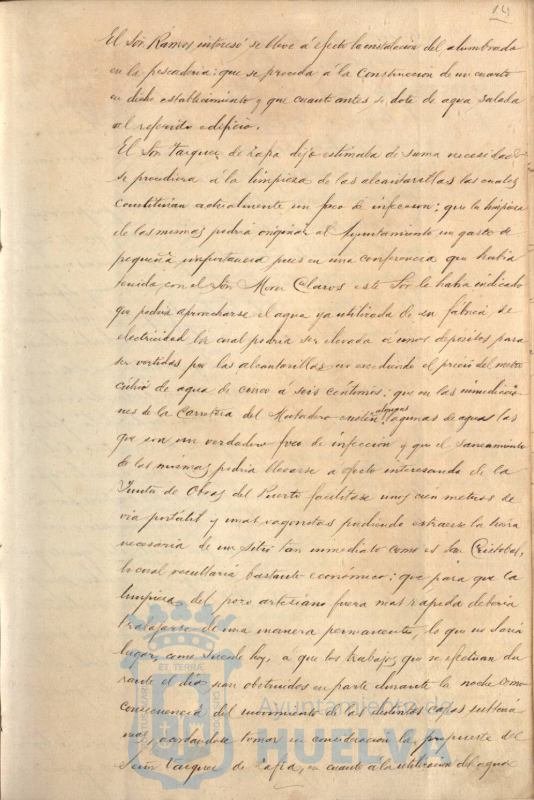 14
El Sór. Ramos interesó se lleve á efecto la instalacion del alumbrado
en la pescaderia: que se proceda á la construccion de un cuarto
en dicho establecimiento y que cuanto antes se dote de agua salada
al referido edificio.
El Sór. Vazquez de Zapa dijo estimaba de suma necesidad
se procediera á la limpieza de las alcantarillas las cuales
constituian actualmente un foco de infeccion: que la limpieza
de las mismas podria originar al Ayuntamiento un gasto de
pequeña importancia, pues en una conferencia que habia
tenido con el Sór. Mora Claros este Sór. le habia indicado
que podria aprovecharse el agua ya utilizada de su fábrica de
electricidad la cual podria ser elevada á unos depósitos para
ser vertidas por las alcantarillas no excediendo el precio del metro
cúbico de agua de cinco á seis céntimos: que en las inmediacio-
nes de la Carretera del Matadero existen algunas lagunas de aguas las
que son un verdadero foco de infección y que el saneamiento
de las mismas podria llevarse a efecto interesando de la
Junta de Obras del Puerto facilitase unos cien metros de
via portátil y unas vagonetas pudiendo extraerse la tierra
necesaria de un sitio tan inmediato como es San Cristobal,
lo cual resultaria bastante económico: que para que la
limpieza del pozo artesiano fuera mas rapida deberia
trabajarse de una manera permanente, lo que no daria
lugar, como sucede hoy, a que los trabajos que se efectuan du
rante el dia sean obstruidos en parte durante la noche como
consecuencia del movimiento de las distintas capas subterra
neas, acordandose tomar en consideracion la propuesta del
Señor Vazquez de Zapa, en cuanto a la utilizacion del agua
Ayuntamiento de
HUELVA
ET TERRÆ